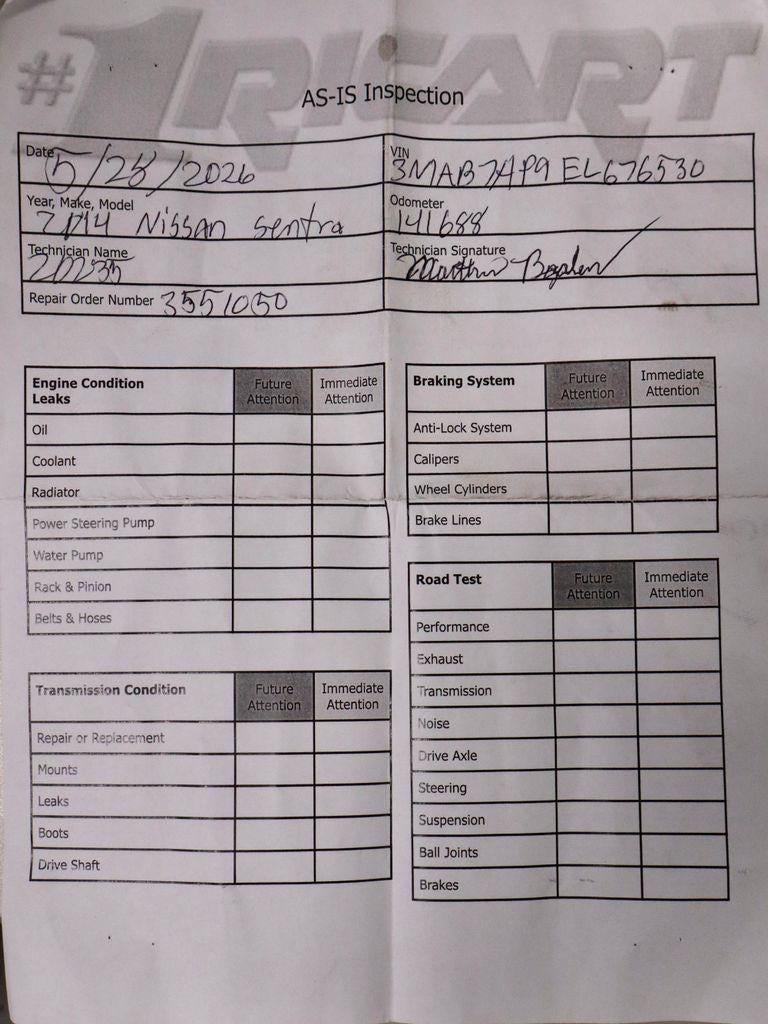 #1RICART
AS-IS Inspection
Date 5/28/2026
VIN 3MAB7AP9EL676530
Year, Make, Model 2014 Nissan Sentra
Odometer 141688
Technician Name
Technician Signature
Repair Order Number 3551050
Engine Condition Leaks Future Attention Immediate Attention
Oil
Coolant
Radiator
Power Steering Pump
Water Pump
Rack & Pinion
Belts & Hoses
Transmission Condition Future Attention Immediate Attention
Repair or Replacement
Mounts
Leaks
Boots
Drive Shaft
Braking System Future Attention Immediate Attention
Anti-Lock System
Calipers
Wheel Cylinders
Brake Lines
Road Test Future Attention Immediate Attention
Performance
Exhaust
Transmission
Noise
Drive Axle
Steering
Suspension
Ball Joints
Brakes